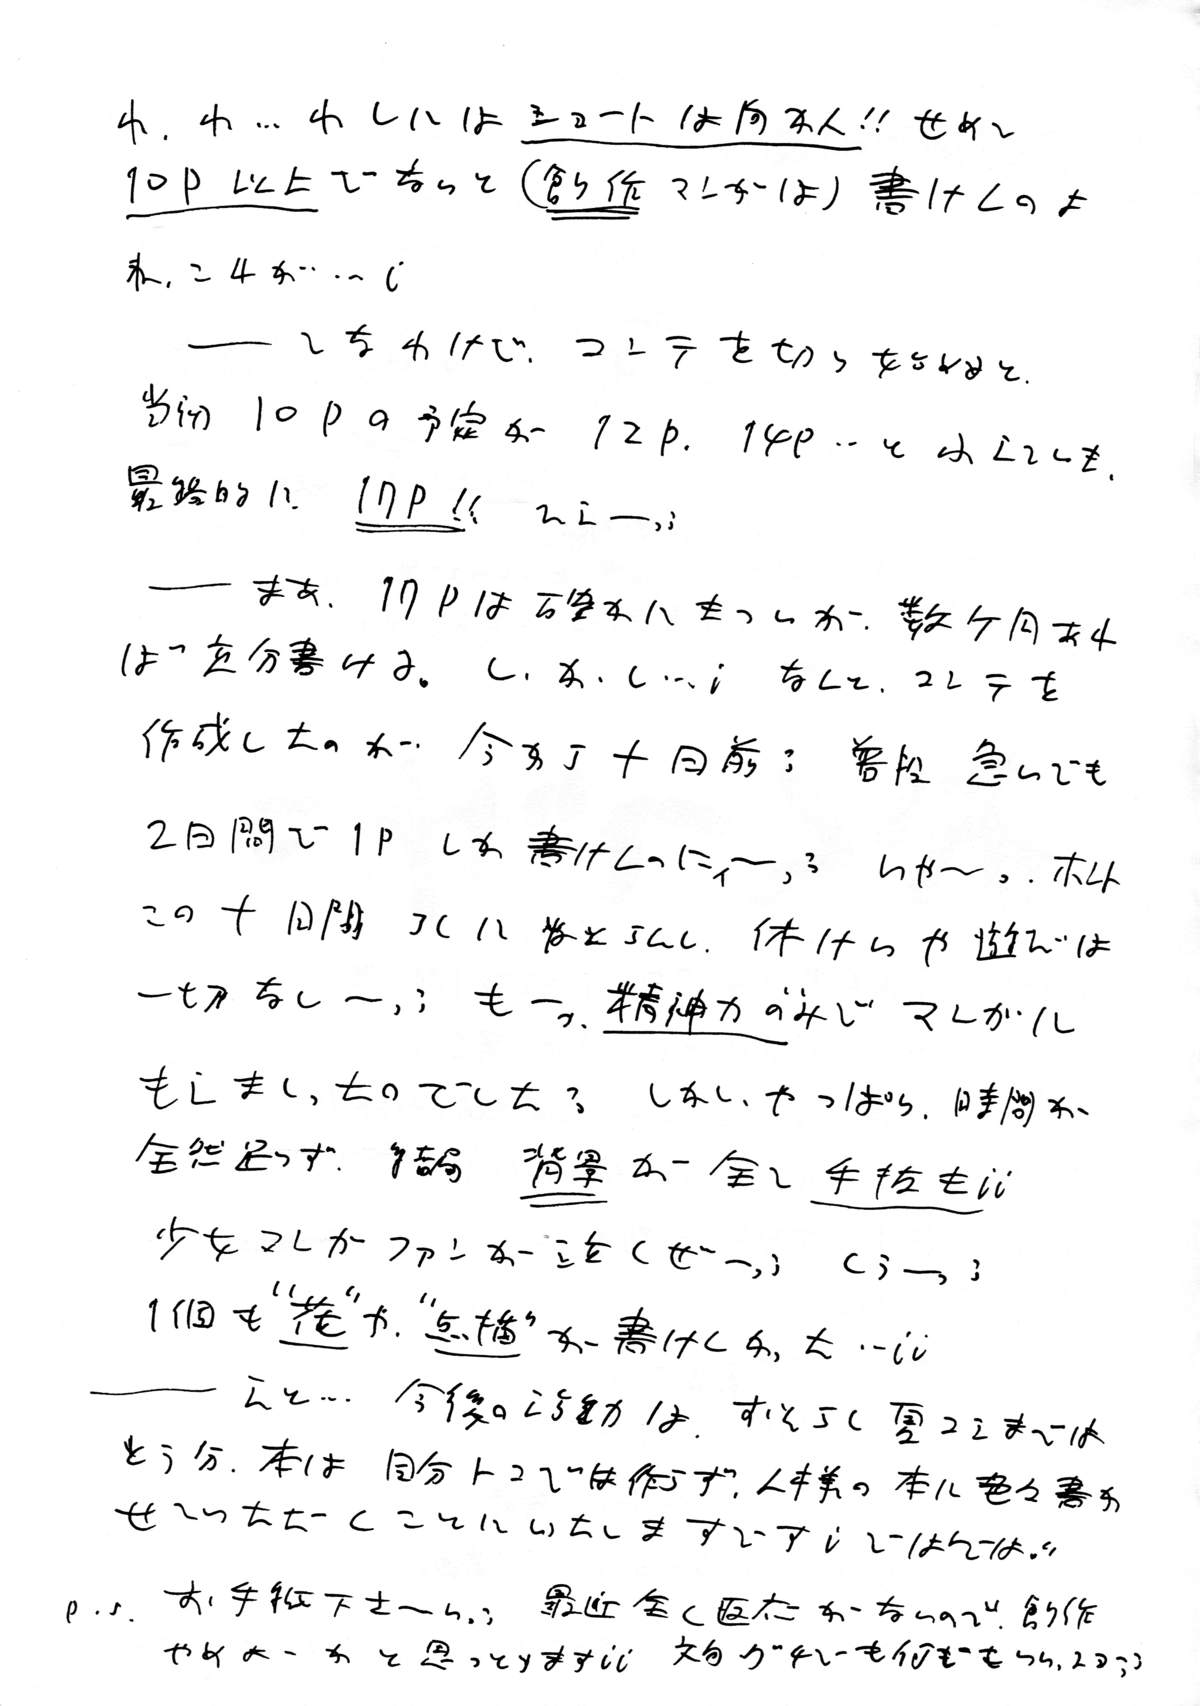 わ、わ…わしにはショートは向かん!! せめて
10P以上でないと(創作マンガは)書けんのよ
ね、これが…〜i
――てなわけで、コンテを切り始めると、
当初10Pの予定が12P、14P‥とふえていき、
最終的に 17P!! てえーっ;
――まあ、17Pは確かにきついが、数ケ月あれ
ば充分書ける。し、か、し…i なんと、コンテを
作成したのが今から十日前; 普段急いでも
2日間で1Pしか書けんのにィ〜っ; いや〜っ、ホント
この十日間ろくに 休けいや遊びは
一切なし〜っ; も一っ、精神力のみでマンガに
もえまし、たのでした; しかし、やっぱり、時間が
全然足らず、結局 背景が全て手抜きii
少女マンガファンが泣くぜーっ; くうーっ;
1個も“花”や、“点描”が書けんかった…ii
――えと… 今後の活動は、おそらく夏コミまでは
とう分、本は自分トコでは作らず、人様の本に色々書か
せていただくことにいたしますですi ではでは。〃
P.S. お手紙下さ〜い; 最近全く反応がないので、創作
やめよーかと思っとりますii 文句グチでも何でもいい、